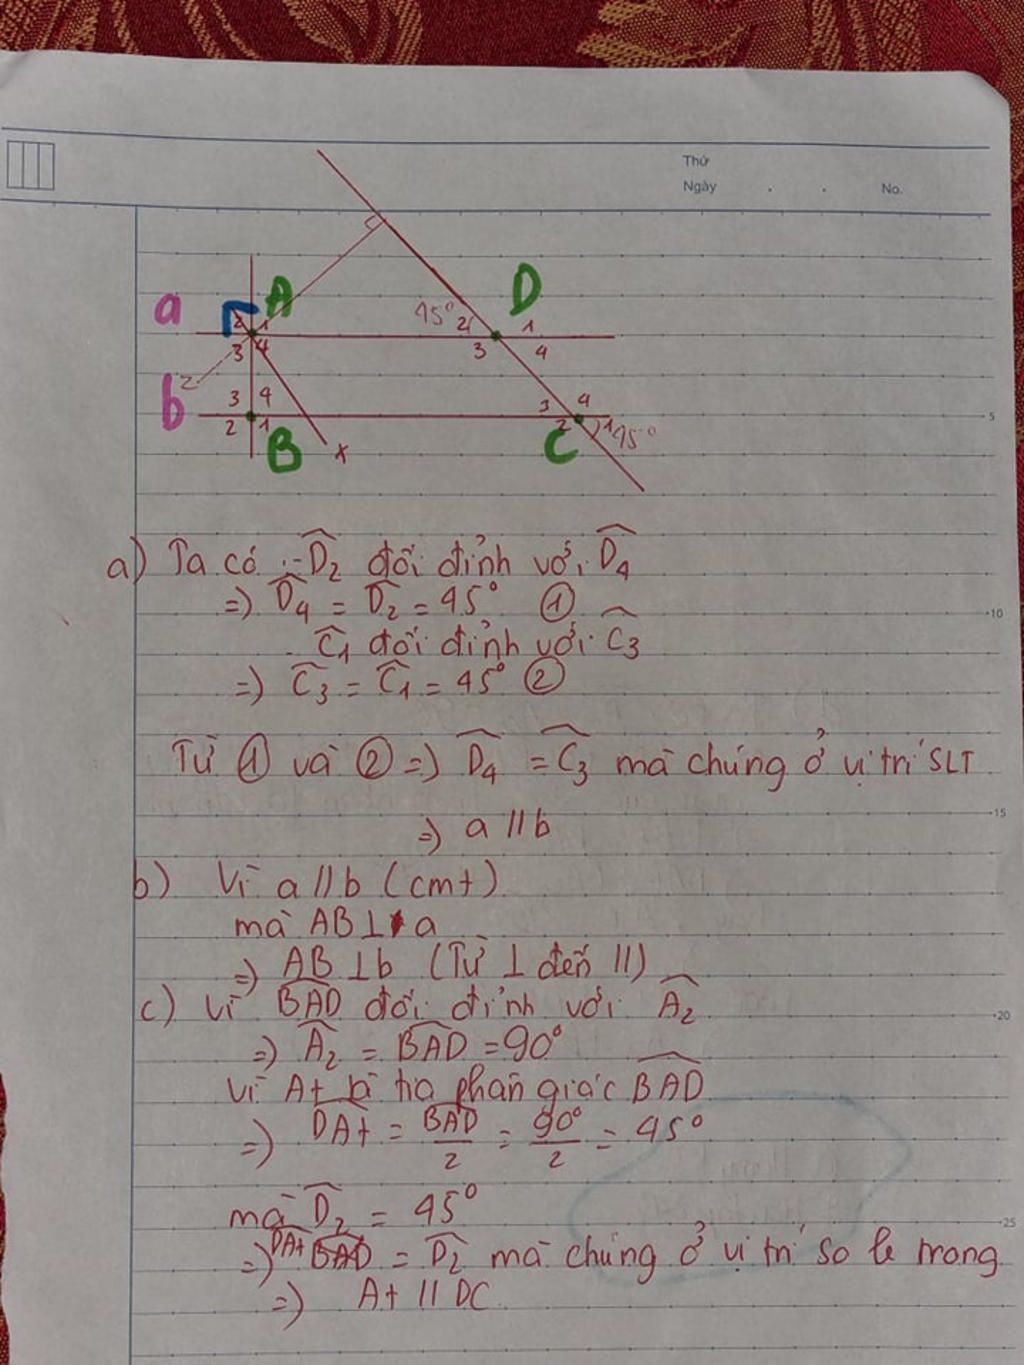 Thứ
Ngày . . No.
a A D
2 1 45° 2 1
3 4 3 4
z
b 3 4 3 4
2 1 2 1 45°
B C
x
5
a) Ta có :- D̂₂ đối đỉnh với D̂₄
=) D̂₄ = D̂₂ = 45° ①
10
- Ĉ₁ đối đỉnh với Ĉ₃
=) Ĉ₃ = Ĉ₁ = 45° ②
Từ ① và ② =) D̂₄ = Ĉ₃ mà chúng ở vị trí SLT
15
=) a // b
b) Vì a // b (cmt)
mà AB ⊥ a
=) AB ⊥ b (Từ ⊥ đến //)
c) Vì B̂AD đối đỉnh với Â₂
20
=) Â₂ = B̂AD = 90°
Vì At là tia phân giác B̂AD
=) D̂At = B̂AD/2 = 90°/2 = 45°
mà D̂₂ = 45°
25
=) DAt = D̂₂ mà chúng ở vị trí so le trong
=) At // DC